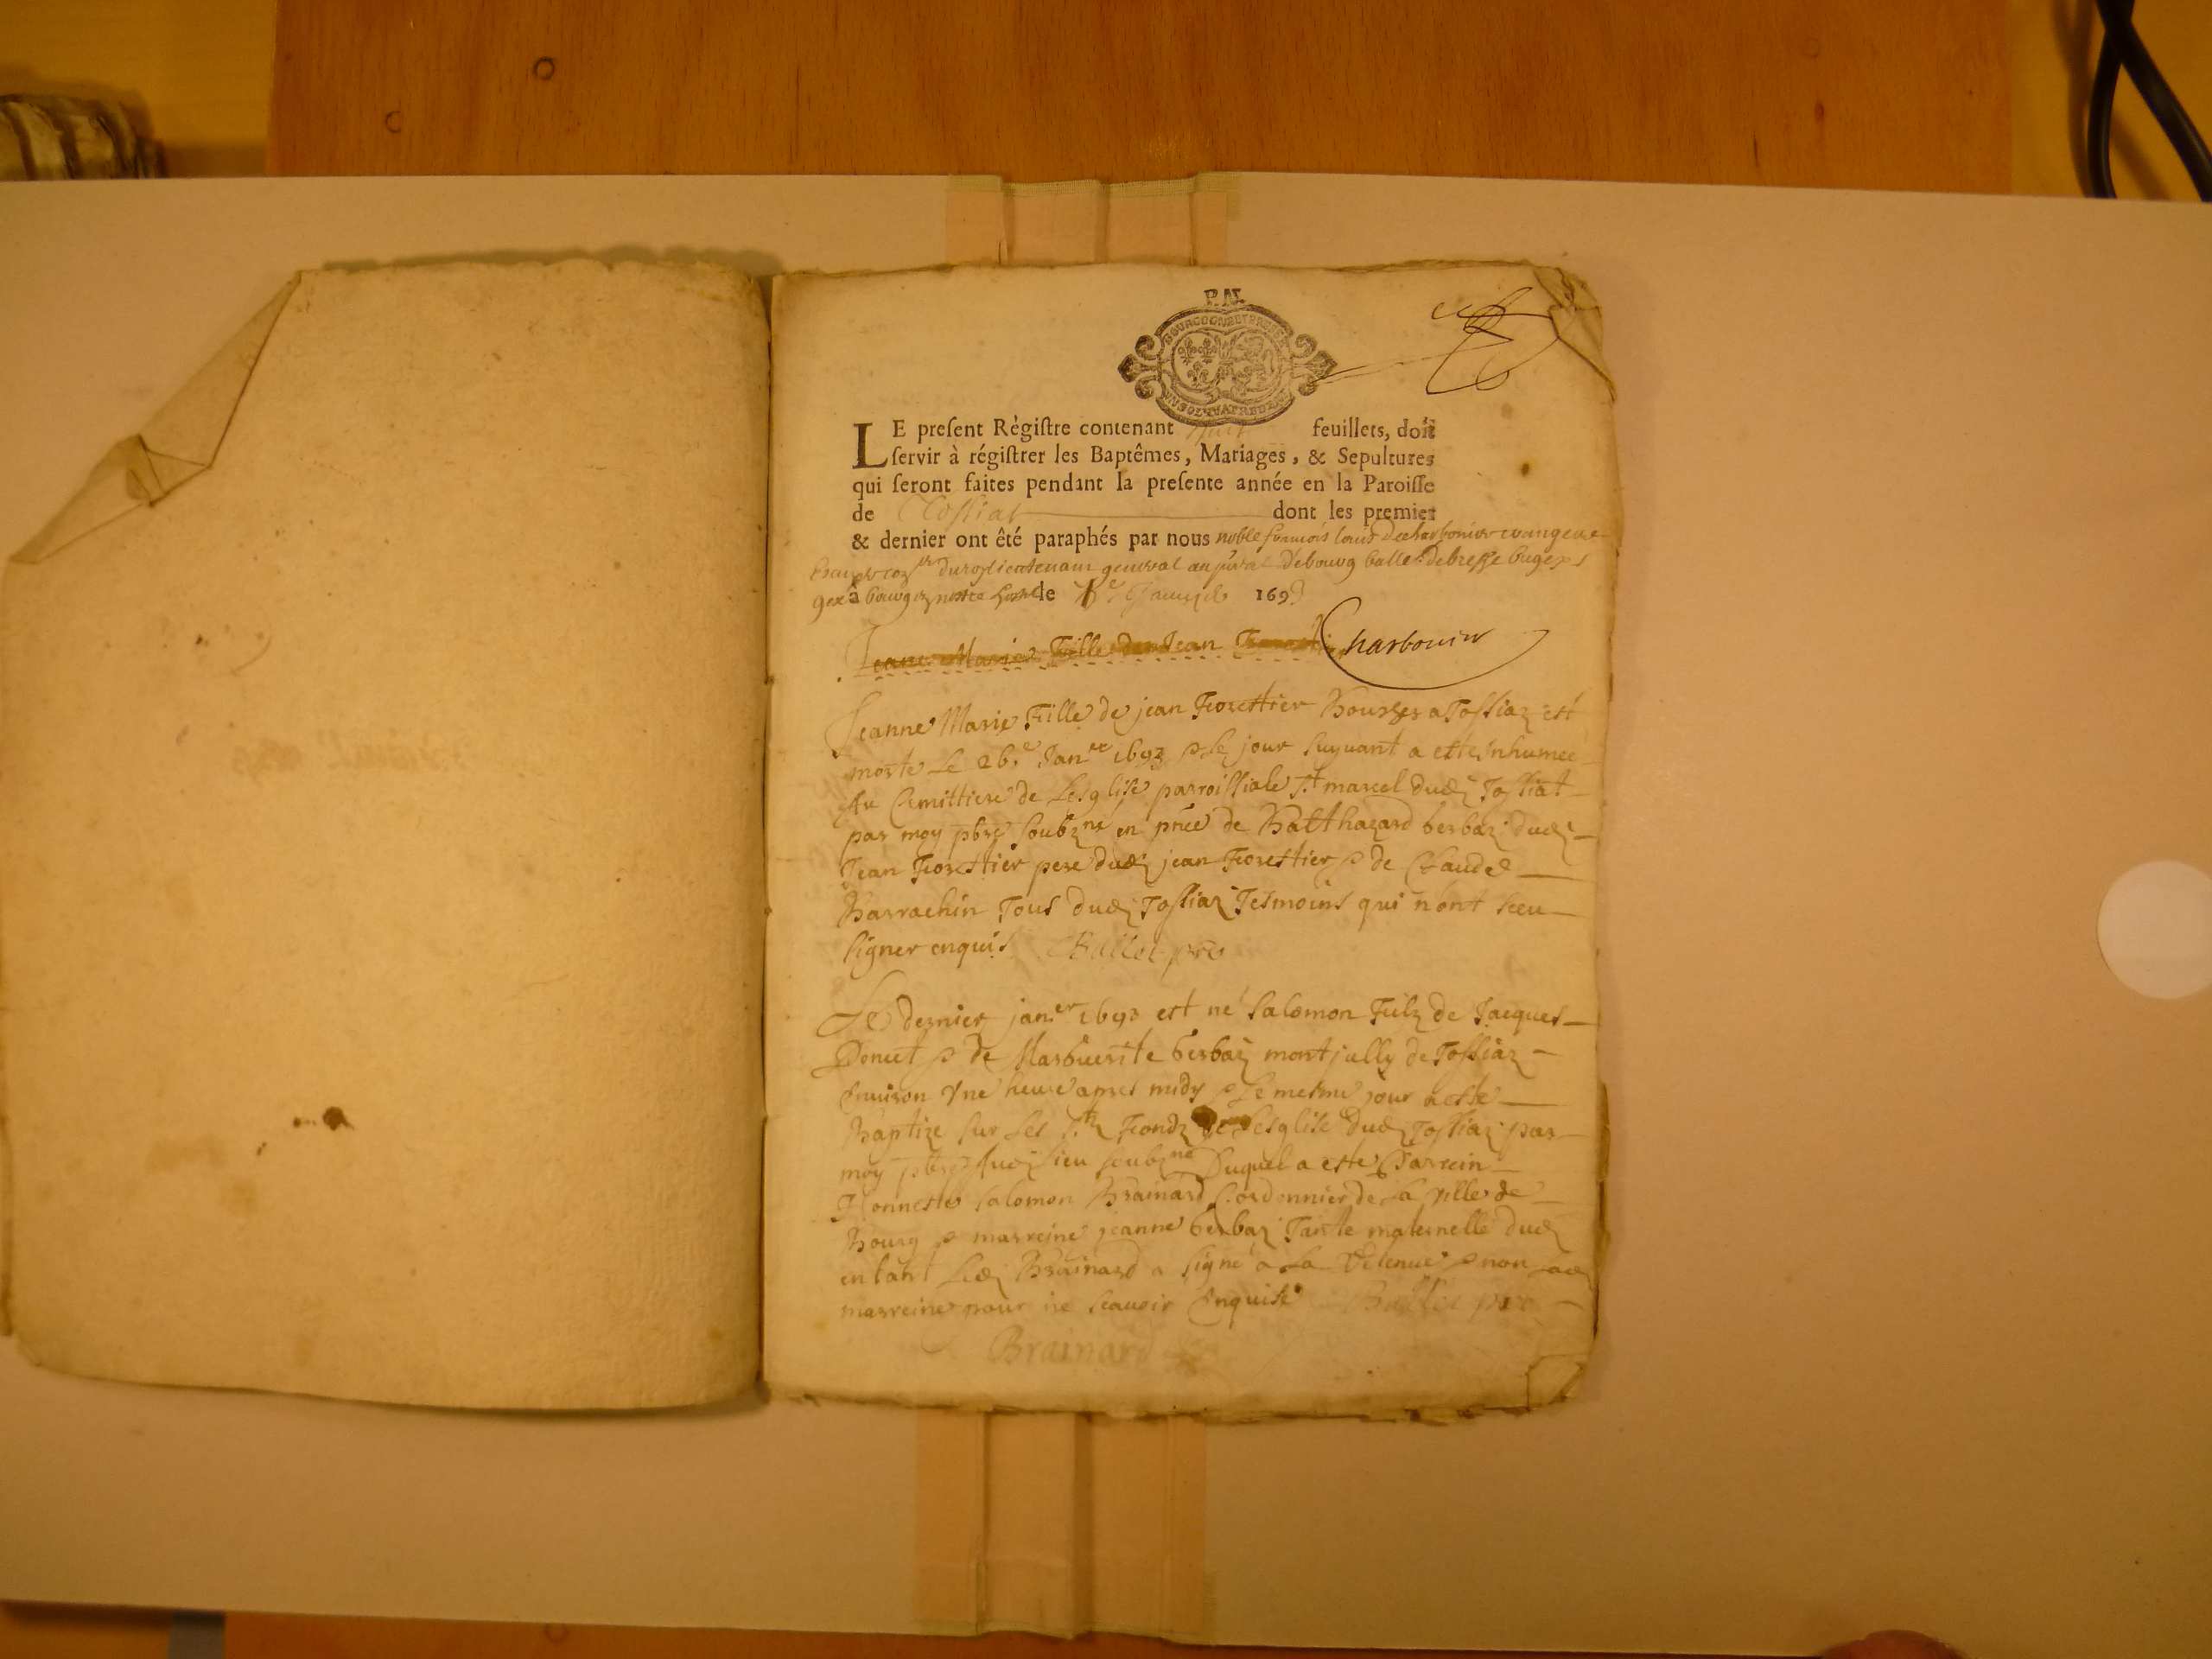 P. N.
BOURGOGNE ET BRESSE
UN SOL QUATRE DEN
LE preſent Régiſtre contenant huit feuillets, doit
ſervir à régiſtrer les Baptêmes, Mariages, & Sepultures
qui ſeront faites pendant la preſente année en la Paroiſſe
de Toſſiat dont les premier
& dernier ont êté paraphés par nous noble francois louis De charbonier crangeac
du roy lieutenant general au pñal De bourg balle. De bresse buges
gex à bourg en nostre hostel le Janvier 1693
Jeanne Marie Fille de Jean
Charbonier
Jeanne Marie Fille de jean Forestier a Toſſiaz est
morte Le 26.e Jan.er 1693 & le jour suyuant a este Inhumeé
Au Cimittiere de Leſgliſe parroiſſiale St marcel dud. Toſſiat
par moy pbre soubz.ne en pñce de Balthazard berbaz dud.
Jean Forestier pere dud. jean Forestier & de Claude
Barrachin Tous dud. Toſſiaz Tesmoins qui n'ont sceu
signer enquis Baillet pre
Le dernier jan.er 1693 est né Salomon Filz de Jacques
Donet & de Marguerite berbaz montjully de Toſſiaz
Enuiron Vne heure apres midy & Le mesme jour a esté
Baptize sur Les Stz Fondz de Lesglise dud. Toſſiaz par
moy pbre Aud. lieu soubz.ne Duquel a este Parrein
Honneste Salomon Brainard Cordonnier de La Ville de
Bourg & marreine jeanne berbaz Tante maternelle dud.
enfant Led. Brainard a signé a La Retenue & non lad.
marreine pour ne scauoir Enquise Baillet pre
Brainard